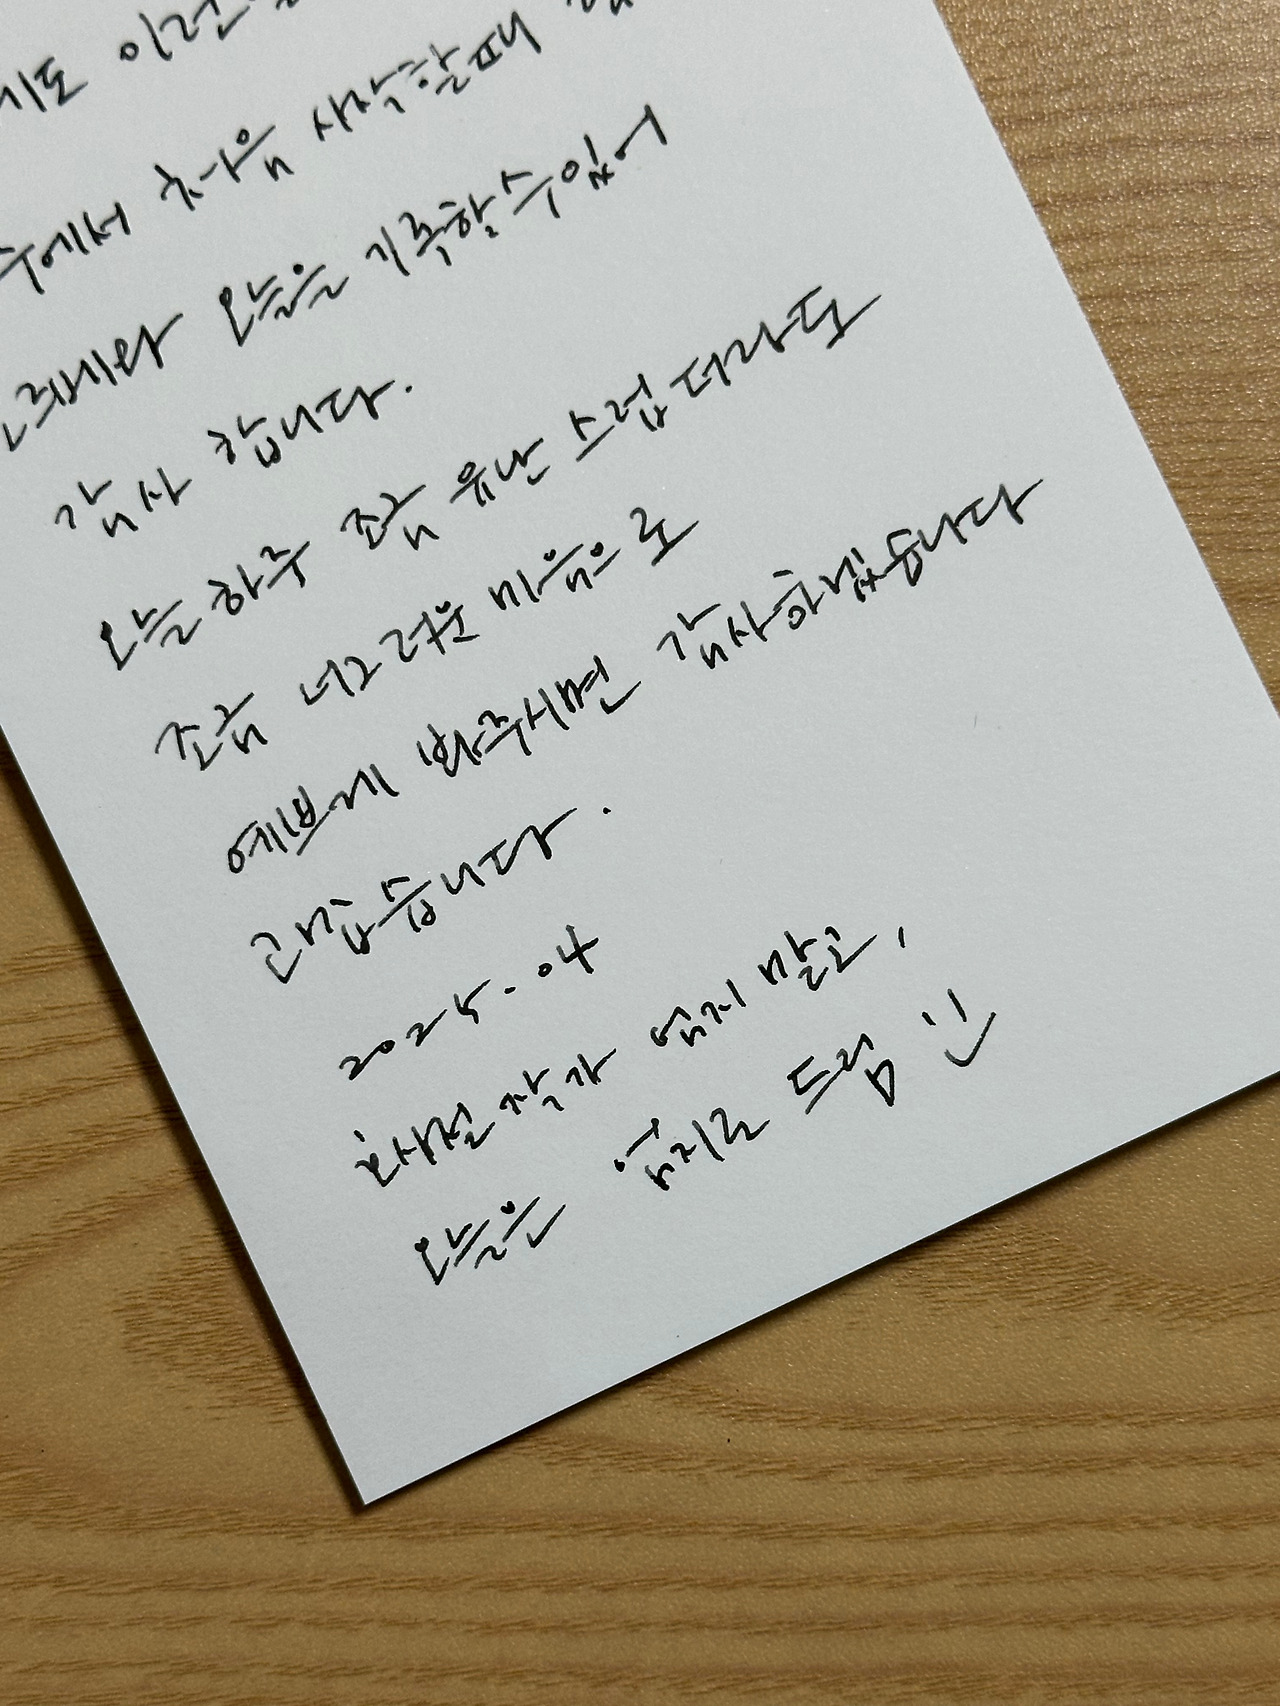 이런
에서 처음 시작할때
오늘을 기록할 수 있어
감사 합니다.
오늘 하루 조금 유난 스럽 더라도
조금 너그러운 마음으로
예쁘게 봐주시면 감사하겠습니다
고맙습니다.
2025.04
작가 엄지 말고,
오늘은 엄지로 드림